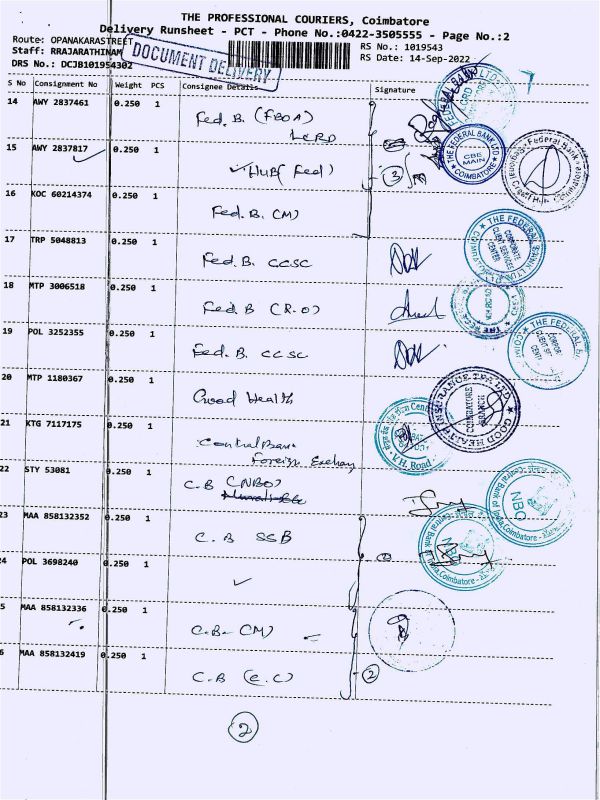 THE PROFESSIONAL COURIERS, Coimbatore
Delivery Runsheet - PCT - Phone No.:0422-3505555 - Page No.:2
Route: OPANAKARASTREET
Staff: RRAJARATHINAM
DRS No.: DCJB101954302
DOCUMENT DELIVERY
RS No.: 1019543
RS Date: 14-Sep-2022
S No Consignment No Weight PCS Consignee Details Signature
14 AWY 2837461 0.250 1 Fed. B. (FBOA)
LCRD
15 AWY 2837817 0.250 1 HUB (Fed)
3
16 KOC 60214374 0.250 1 Fed. B. (M)
17 TRP 5048813 0.250 1 Fed. B. CCSC
18 MTP 3006518 0.250 1 Fed. B (R.O)
19 POL 3252355 0.250 1 Fed. B. CCSC
20 MTP 1180367 0.250 1 Good Health
21 KTG 7117175 0.250 1 Central Bank
Foreign Exchang
22 STY 53081 0.250 1 C.B (NBO)
23 MAA 858132352 0.250 1 C.B SSB
24 POL 3698240 0.250 1
5 MAA 858132336 0.250 1 C.B- (M)
6 MAA 858132419 0.250 1 C.B (E.C)
2
2
THE FEDERAL BANK LTD.
CBE
MAIN
COIMBATORE
Federal Bank
THE FEDERAL BANK LTD.
CORPORATE
CLIENT SERVICES
CENTER
THE FEDERAL B
GOOD HEALTH INSURANCE TPA LTD
COIMBATORE
BRANCH
V.H. Road
Central Bank of India, Coimbatore
NBO
Central Bank of India, Coimbatore
NBO